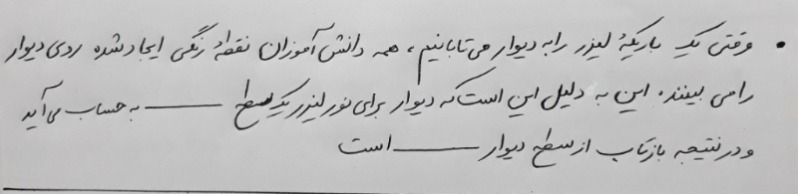 • وقتی یک باریکهٔ لیزر را به دیوار می‌تابانیم، همه دانش‌آموزان نقطهٔ رنگی ایجاد شده روی دیوار
را می بینند. این به دلیل این است که دیوار برای نور لیزر یک سطح ــــــــ به حساب می‌آید
و در نتیجه بازتاب از سطح دیوار ــــــــ است